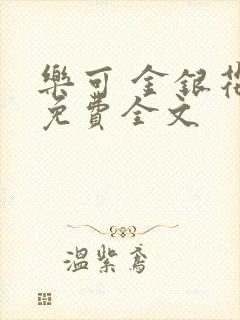 樂可 金銀花
免費全文
溫紫鳶